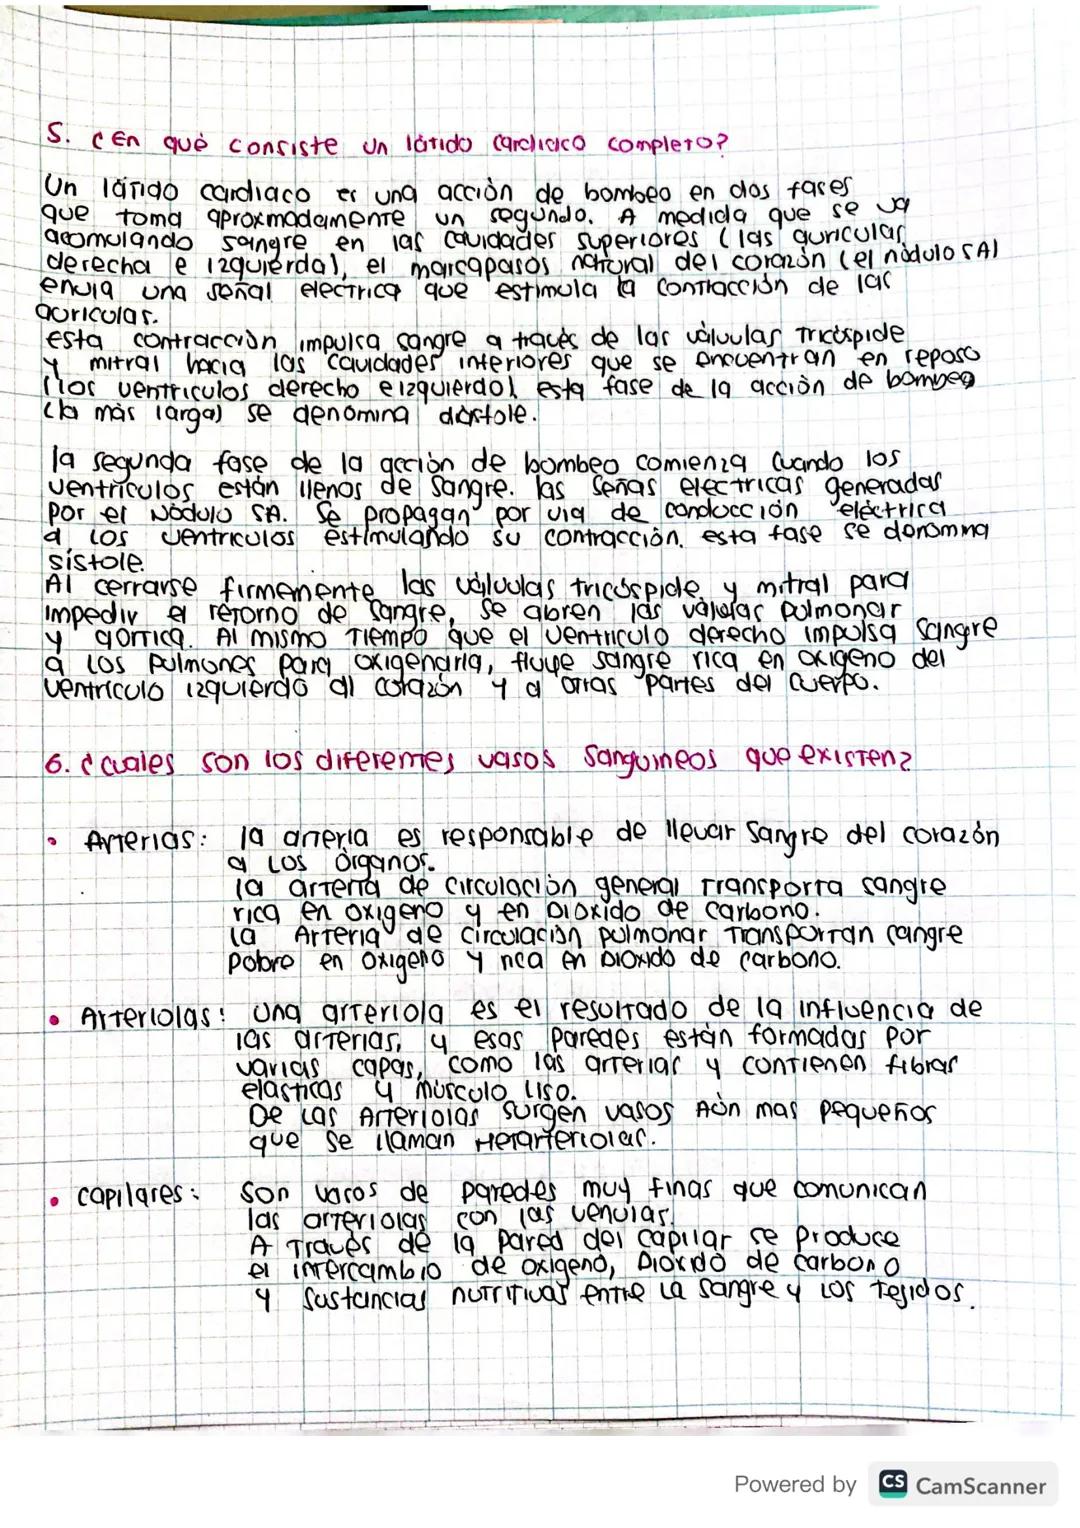 5. ¿En qué consiste un látido cardiaco completo?
Un látido cardiaco es una acción de bombeo en dos fases
que toma aproxmadamente un segundo. A medida que se va
acomulando sangre en las cavidades superiores (las auriculas
derecha e izquierda), el marcapasos natural del corazón (el nódulo SA)
envia una señal electrica que estimula la contracción de las
auriculas.
esta contracción impulsa sangre a través de las válvulas Tricúspide
y mitral hacia las cavidades inferiores que se encuentran en reposo
(los ventriculos derecho e izquierdo). esta fase de la acción de bombeo
(la más larga) se denomina diástole.
la segunda fase de la acción de bombeo comienza cuando los
ventriculos están llenos de sangre. las señas eléctricas generadas
por el Nódulo SA. Se propagan por via de conducción eléctrica
a los ventriculos estimulando su contracción. esta fase se denomina
sístole.
Al cerrarse firmemente las válvulas tricúspide y mitral para
impedir el retorno de sangre, se abren las válvulas pulmonar
y aortica. Al mismo Tiempo que el ventriculo derecho impulsa sangre
a los pulmones para oxigenarla, fluye sangre rica en oxigeno del
ventrículo izquierdo al corazón y a otras partes del cuerpo.
6. ¿cuales son los diferentes vasos sanguineos que existen?
• Arterias: la arteria es responsable de llevar sangre del corazón
a los órganos.
la arteria de circulación general Transporta sangre
rica en oxigeno y en Dioxido de carbono.
la Arteria de circulación pulmonar Transportan sangre
pobre en oxigeno y rica en Dioxido de carbono.
• Arteriolas: una arteriola es el resultado de la influencia de
las arterias, y esas paredes están formadas por
varias capas, como las arterias y contienen fibras
elásticas y músculo liso.
De las Arteriolas surgen vasos Aún mas pequeños
que se llaman Metarteriolas.
• capilares: Son vasos de paredes muy finas que comunican
las arteriolas con las venulas.
A Través de la pared del capilar se produce
el intercambio de oxigeno, Dioxido de carbono
y sustancias nutritivas entre la sangre y los Tejidos.
Powered by CS CamScanner